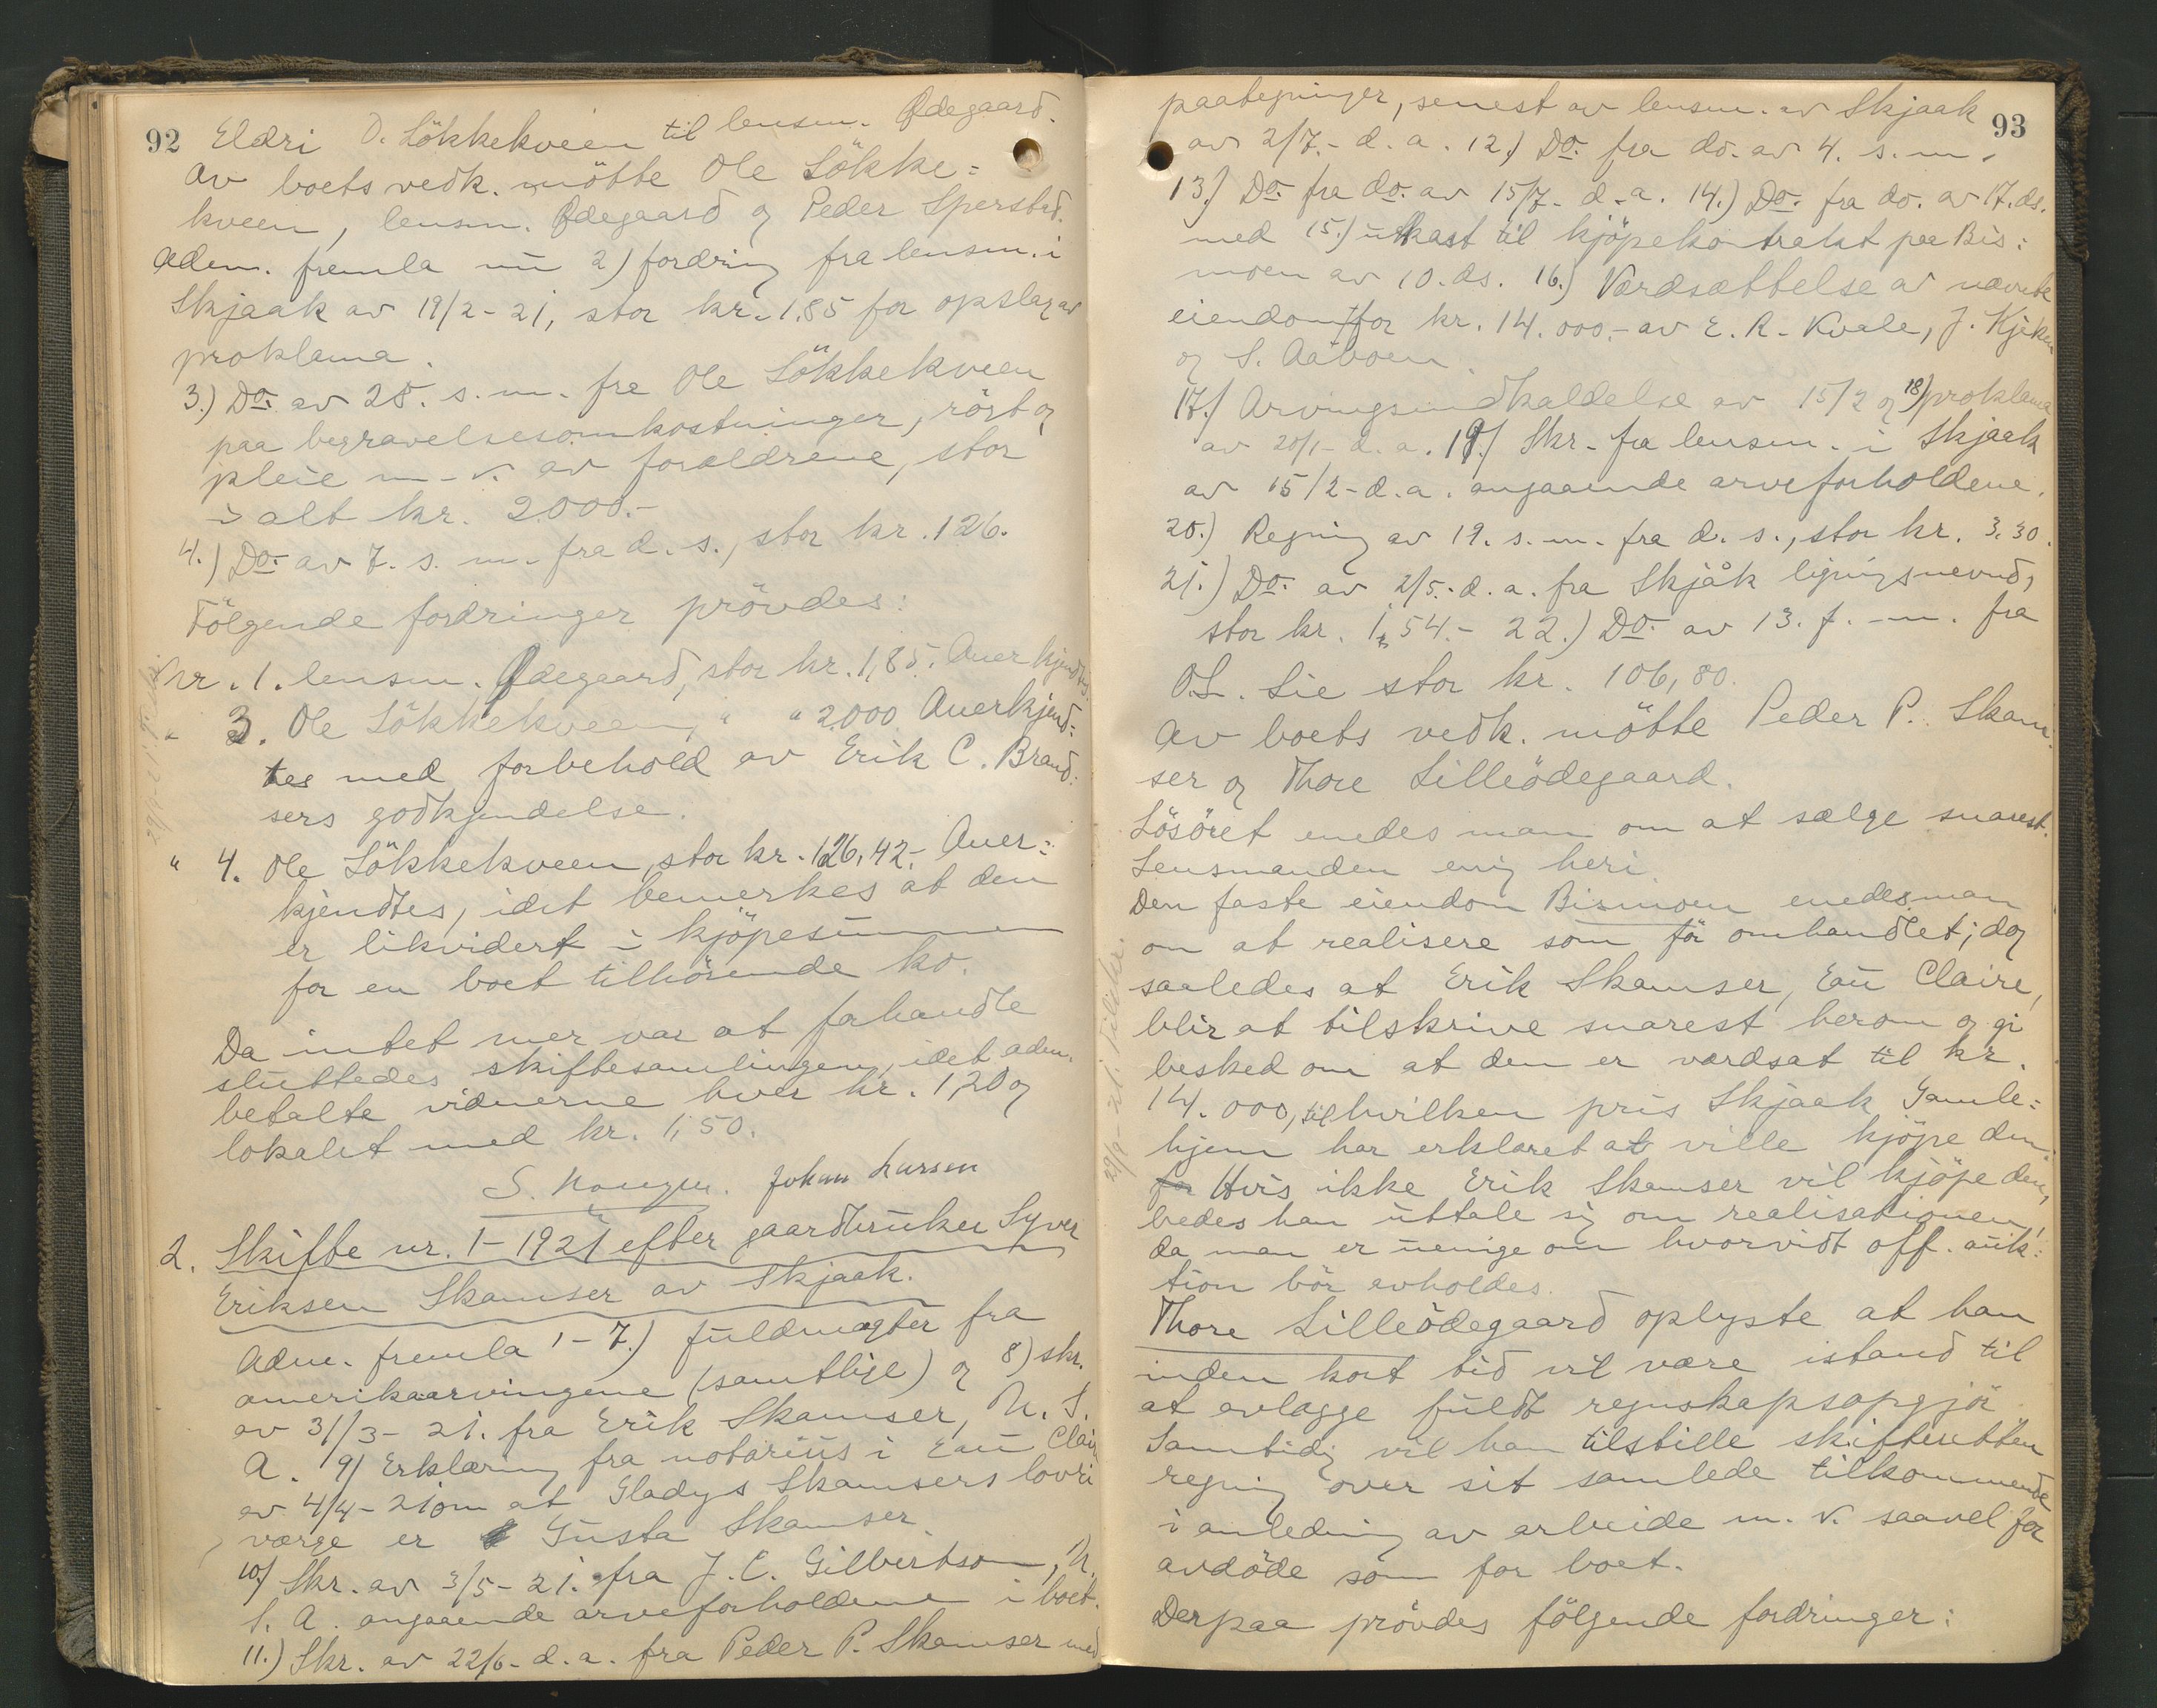 92 Eldri O. Lökkekveen til lensm. Ødegaard.
Av boets vedk. mötte Ole Lökke=
kveen, lensm. Ødegaard og Peder Sperstad.
Adm. fremla nu 2) fordring fra lensm. i
Skjaak av 19/2-21, stor kr. 1,85 for opslag av
proklama.
3.) Do. av 28. s. m. fra Ole Lökkekveen
paa begravelsesomkostninger, rögt og
pleie m. v. av forældrene, stor
i alt kr. 2000.-
4.) Do. av 7. s. m. fra d. s., stor kr. 126.
Fölgende fordringer prövdes:
Nr. 1. lensm. Ødegaard, stor kr. 1,85. Anerkjendtes.
" 3. Ole Lökkekveen, " " 2000 Anerkjend=
tes med forbehold av Erik C. Brand=
sers godkjendelse.
" 4. Ole Lökkekveen, stor kr. 126,42.- Aner=
kjendtes, idet bemerkes at den
er likvidert i kjöpesummen
for en boet tilhörende ko.
Da intet mer var at forhandle
sluttedes skiftesamlingen, idet adm.
betalte vidnerne hver kr. 1,20 og
lokalet med kr. 1,50.
Johan Larsen
2. Skifte nr. 1-1921 efter gaardbruker Syver
Eriksen Skamser av Skjaak.
Adm. fremla 1-7.) fuldmagter fra
amerikaarvingene (samtlige) og 8) skr.
av 31/3-21. fra Erik Skamser, U. S.
A. 9) Erklæring fra notarius i Eau Clair
av 4/4-21 om at Gladys Skamsers lovli
værge er Gusta Skamser.
10) Skr. av 3/5-21. fra J. C. Gilbertson, U.
S. A. angaaende arveforholdene i boet.
11.) Skr. av 22/6- d. a. fra Peder P. Skamser med
paategninger, senest av lensm. av Skjaak 93
av 2/7.- d. a. 12.) Do. fra do. av 4. s. m.
13.) Do. fra do. av 15/7- d. a. 14.) Do. fra do. av 17. ds.
med 15.) utkast til kjöpekontrakt paa Bis=
moen av 10. ds. 16.) Værdsættelse av nævnte
eiendom for kr. 14.000.- av E. R. Kvale, J. Kjeken
og S. Aaboen.
17.) Arvingsindkaldelse av 15/2 og 18) proklama
av 20/1- d. a. 19.) Skr. fra lensm. i Skjaak
av 15/2- d. a. angaaende arveforholdene.
20.) Regning av 19. s. m. fra d. s., stor kr. 3.30.
21.) Do. av 2/5.- d. a. fra Skjåk ligningsnevnd,
stor kr. 1,54.- 22.) Do. av 13. f. m. fra
O. L. Lie stor kr. 106,80.
Av boets vedk. mötte Peder P. Skam=
ser og Thore Lilleödegaard.
Lösöret enedes man om at sælge snarest.
Lensmanden enig heri.
Den faste eiendom Bismoen enedes man
om at realisere som för omhandlet; dog
saaledes at Erik Skamser, Eau Claire,
blir at tilskrive snarest herom og gi
besked om at den er værdsat til kr.
14.000, til hvilken pris Skjaak Gamle=
hjem har erklæret at ville kjöpe den.
Hvis ikke Erik Skamser vil kjöpe den,
bedes han uttale sig om realisationen,
da man er uenige om hvorvidt off. auk=
tion bör avholdes.
Thore Lilleödegaard oplyste at han
inden kort tid vil være istand til
at avlægge fuldt regnskapsopgjör.
Samtidig vil han tilstille skifteretten
regning over sit samlede tilkommende
i anledning av arbeide m. v. saavel for
avdöde som for boet.
Derpaa prövdes fölgende fordringer: